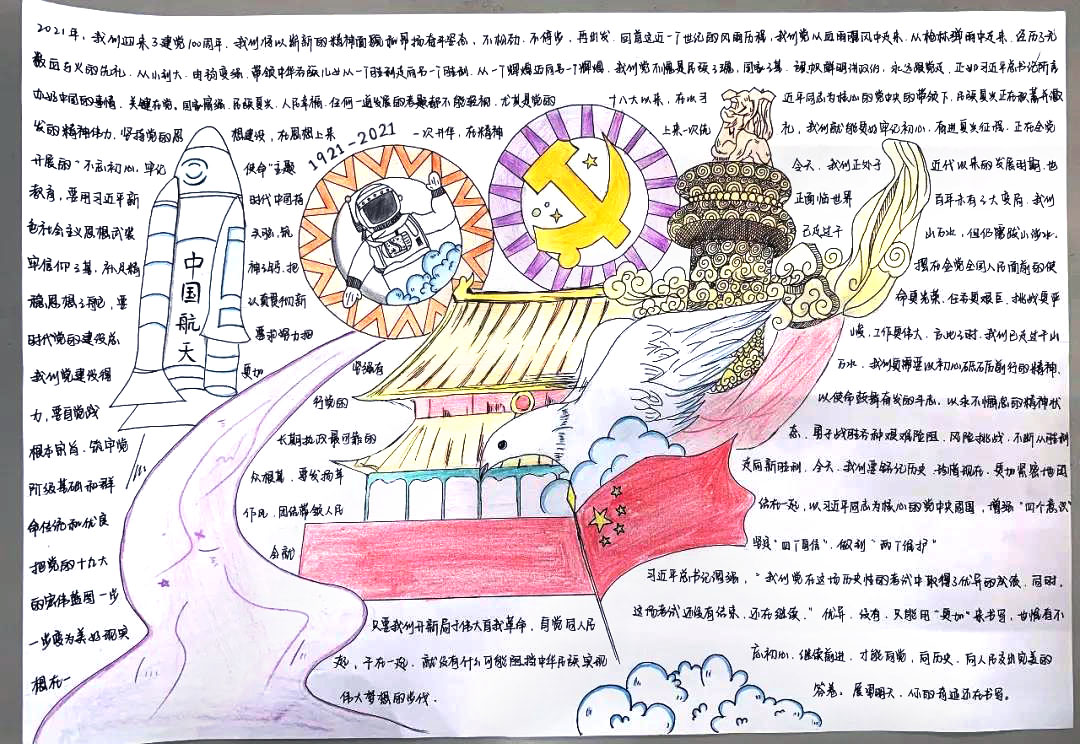 2021年,我们迎来了建党100周年,我们将以崭新的精神面貌和昂扬奋斗姿态,不松劲、不停步,再出发.回首这近一个世纪的风雨历程,我们党从血雨腥风中走来,从枪林弹雨中走来,经历了无
数血与火的洗礼,从小到大、由弱变强,带领中华各族儿女从一个胜利走向另一个胜利.从一个辉煌迈向另一个辉煌.我们党不愧是民族之魂,国家之基,
办好中国的事情,关键在党。国家富强、民族复兴、人民幸福,任何一道发展的考题都不能轻视,尤其是党的 十八大以来,在以习 近平同志为核心的党中央的带领下,民族复兴正在披
发的精神伟力,坚持党的思 想建设,在思想上来 一次升华,在精神 上来一次洗 礼,我们就能更好牢记初心,奋进复兴征程。正在全党
1921-2021
开展的"不忘初心,牢记 使命"主题 今天,我们正处于 近代以来的发展时期,也
教育,要用习近平新 时代中国特 正面临世界 百年未有之大变局,我们
色社会主义思想武装 头脑,筑 已走过千 山万水,但仍需跋山涉水.
牢信仰之基,补足精 神之钙,把 摆在全党全国人民面前的使
稳思想之舵,要 以真贯彻新 命更光荣、任务更艰巨、挑战更严
时代党的建设总 要求努力把 峻、工作更伟大。 我们已走过千山
我们党建设得 更加 坚强有 万水,我们更需要以初心砥砺前行的精神、
力,要自觉践 行党的 以使命鼓舞奋发的斗志,以永不懈怠的精神状
根本宗旨,筑牢党 长期执政最可靠的 态,勇于战胜各种艰难险阻、风险挑战,不断从胜利
阶级基础和群 众根基,要发扬革 走向新胜利,今天,我们要铭记历史、珍惜现在,更加紧密地团
命传统和优良 作风,团结带领人民 结在一起,以习近平同志为核心的党中央周围,增强"四个意识"
把党的十九大 全部 坚定"四个自信",做到"两个维护"
的宏伟蓝图一步 习近平总书记强调,"我们党在这场历史性的考试中取得了优异的成绩,同时,
一步变为美好现实 只要我们开新局于伟大自我革命,自觉同人民 这场考试还没有结束,还在继续。"优异、没有,只能用"更加"来书写,也惟有不
想在一 起,干在一起,就没有什么可能阻挡中华民族实现 忘初心、继续前进,才能向党、向历史、向人民交出完美的
伟大梦想的步伐. 答卷。展望明天,你的奇迹还在书写。
中国航天